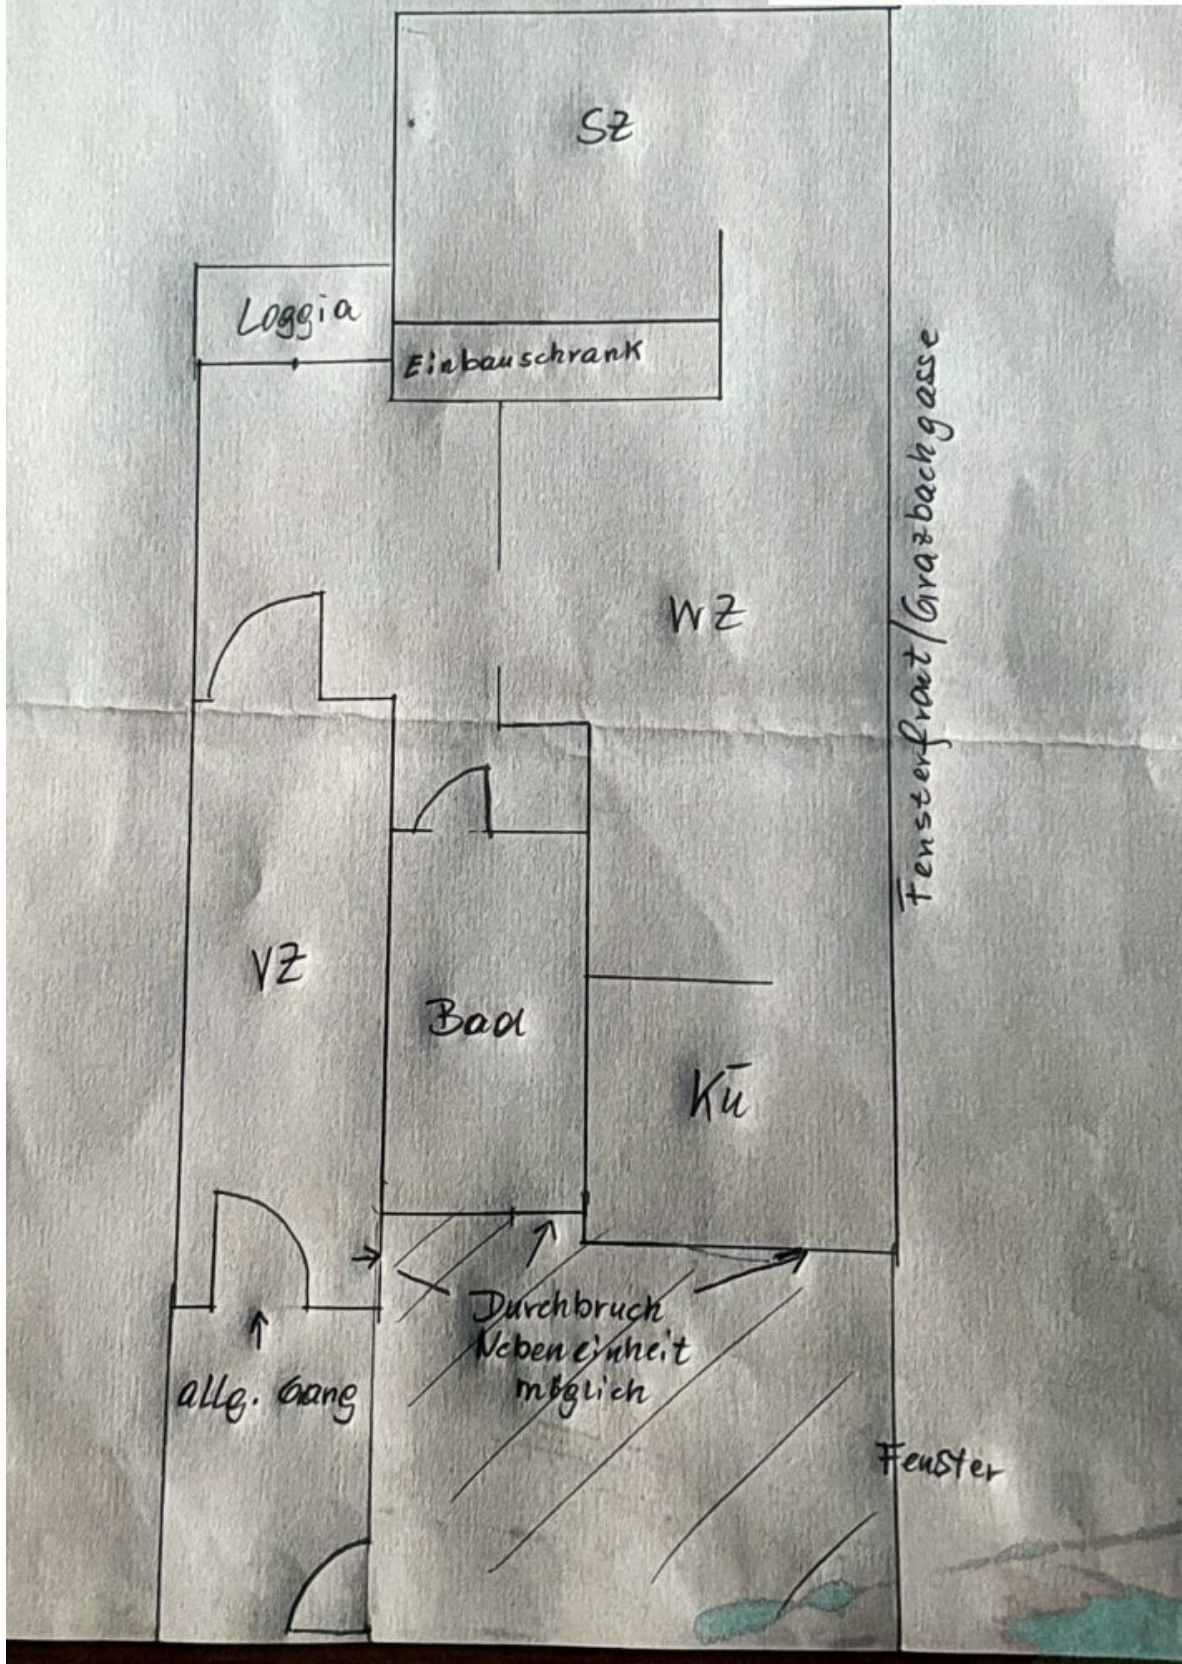 SZ
Loggia
Einbauschrank
Fensterfront/Grazbachgasse
WZ
VZ
Bad
Kü
Durchbruch
Nebeneinheit
möglich
allg. Gang
Fenster